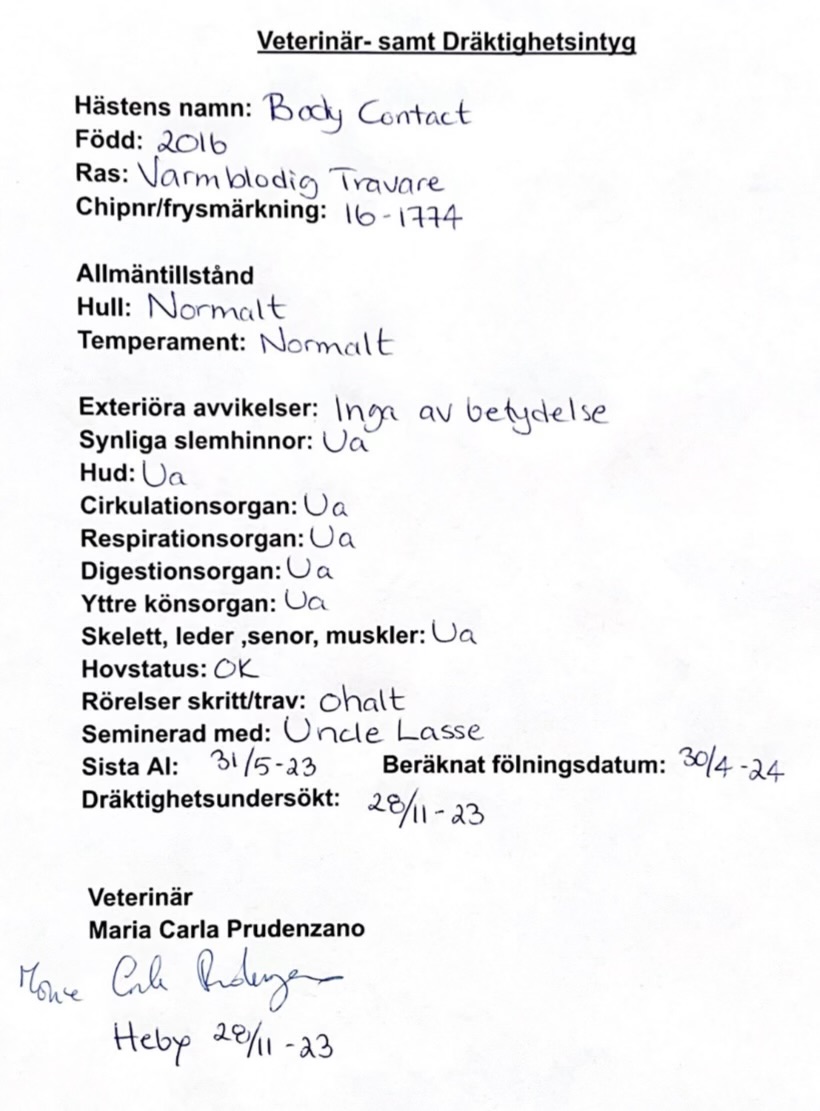 Veterinär- samt Dräktighetsintyg
Hästens namn: Body Contact
Född: 2016
Ras: Varmblodig Travare
Chipnr/frysmärkning: 16-1774
Allmäntillstånd
Hull: Normalt
Temperament: Normalt
Exteriöra avvikelser: Inga av betydelse
Synliga slemhinnor: Ua
Hud: Ua
Cirkulationsorgan: Ua
Respirationsorgan: Ua
Digestionsorgan: Ua
Yttre könsorgan: Ua
Skelett, leder ,senor, muskler: Ua
Hovstatus: OK
Rörelser skritt/trav: ohalt
Seminerad med: Uncle Lasse
Sista AI: 31/5-23 Beräknat fölningsdatum: 30/4-24
Dräktighetsundersökt: 28/11-23
Veterinär
Maria Carla Prudenzano
Heby 28/11-23